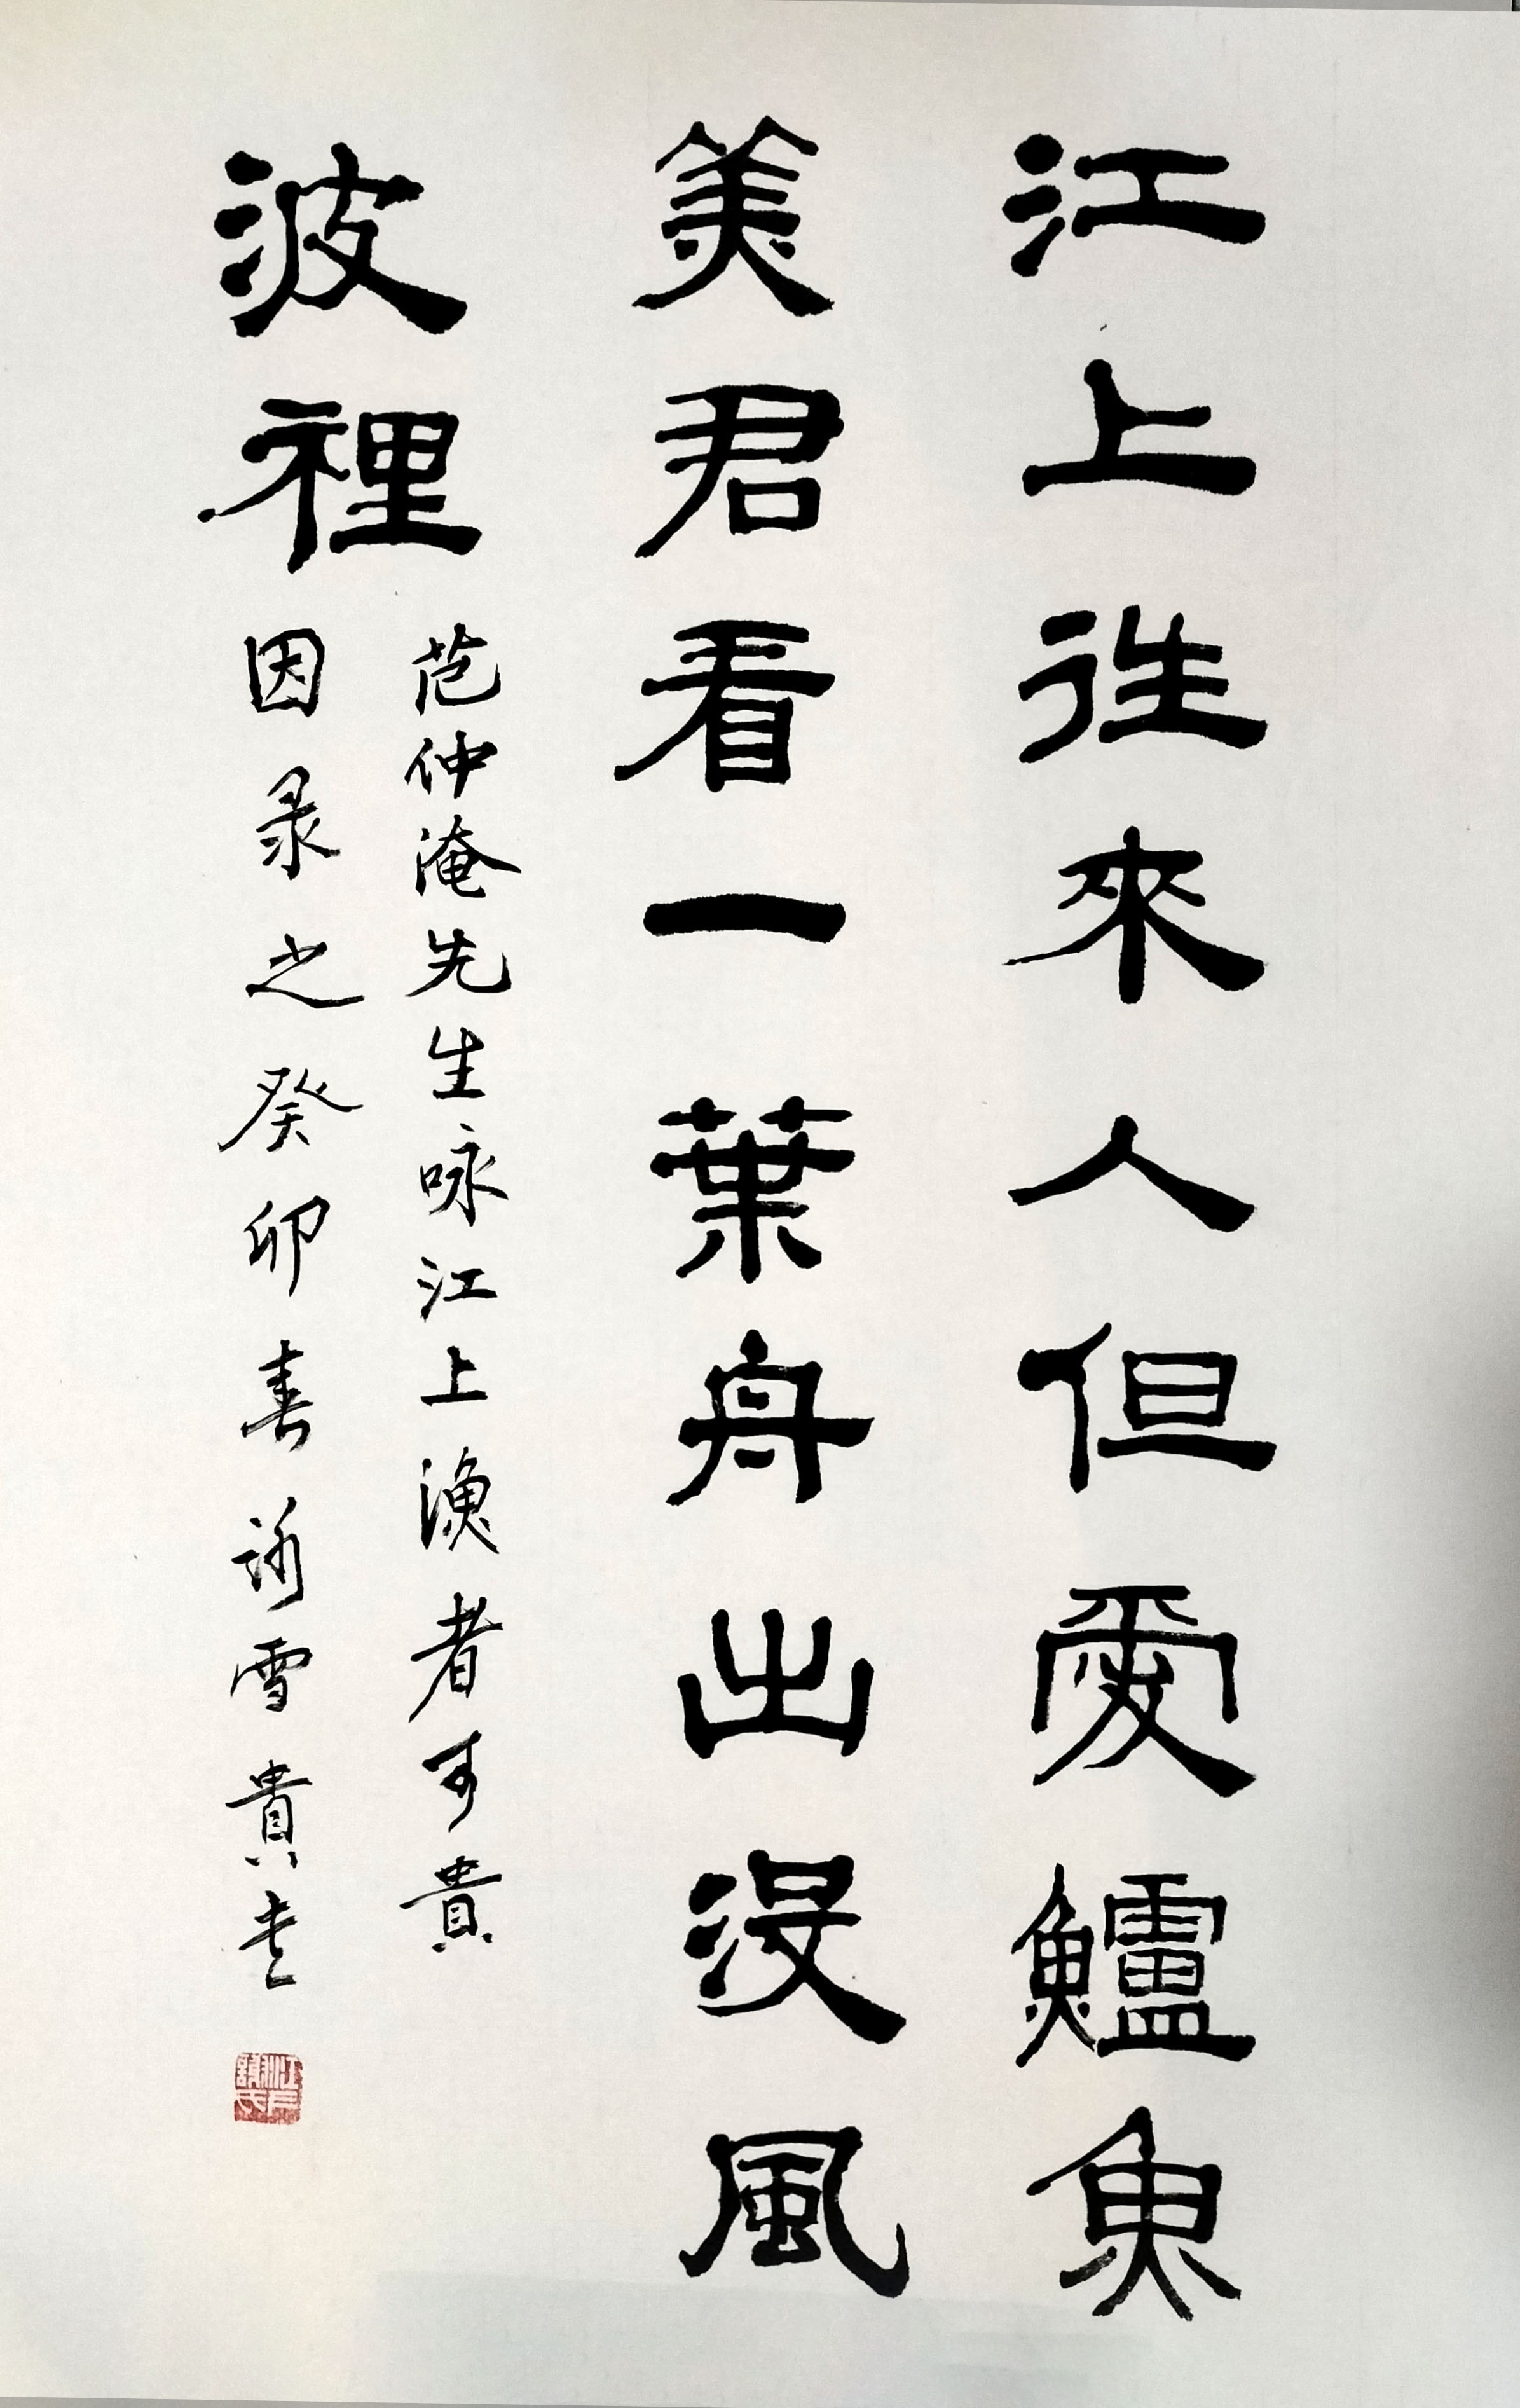 江上往來人但愛鱸魚
美君看一葉舟出没風
波裡
范仲淹先生咏江上漁者可貴
因录之癸卯春詠雪貴去